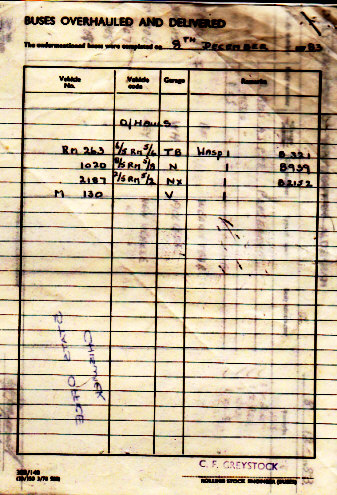 BUSES OVERHAULED AND DELIVERED
The undermentioned buses were completed on 8TH DECEMBER 1983
Vehicle No. Vehicle code Garage Remarks
O/HAULS
RM 263 6/5 RM 5/6 TB Wasp B 321
1020 8/5 RM 5/9 N B959
2187 7/5 RM 5/2 NX B2152
M 130 V
CHISWICK
STAFF OFFICE
C. F. GREYSTOCK
ROLLING STOCK ENGINEER (BUSES)